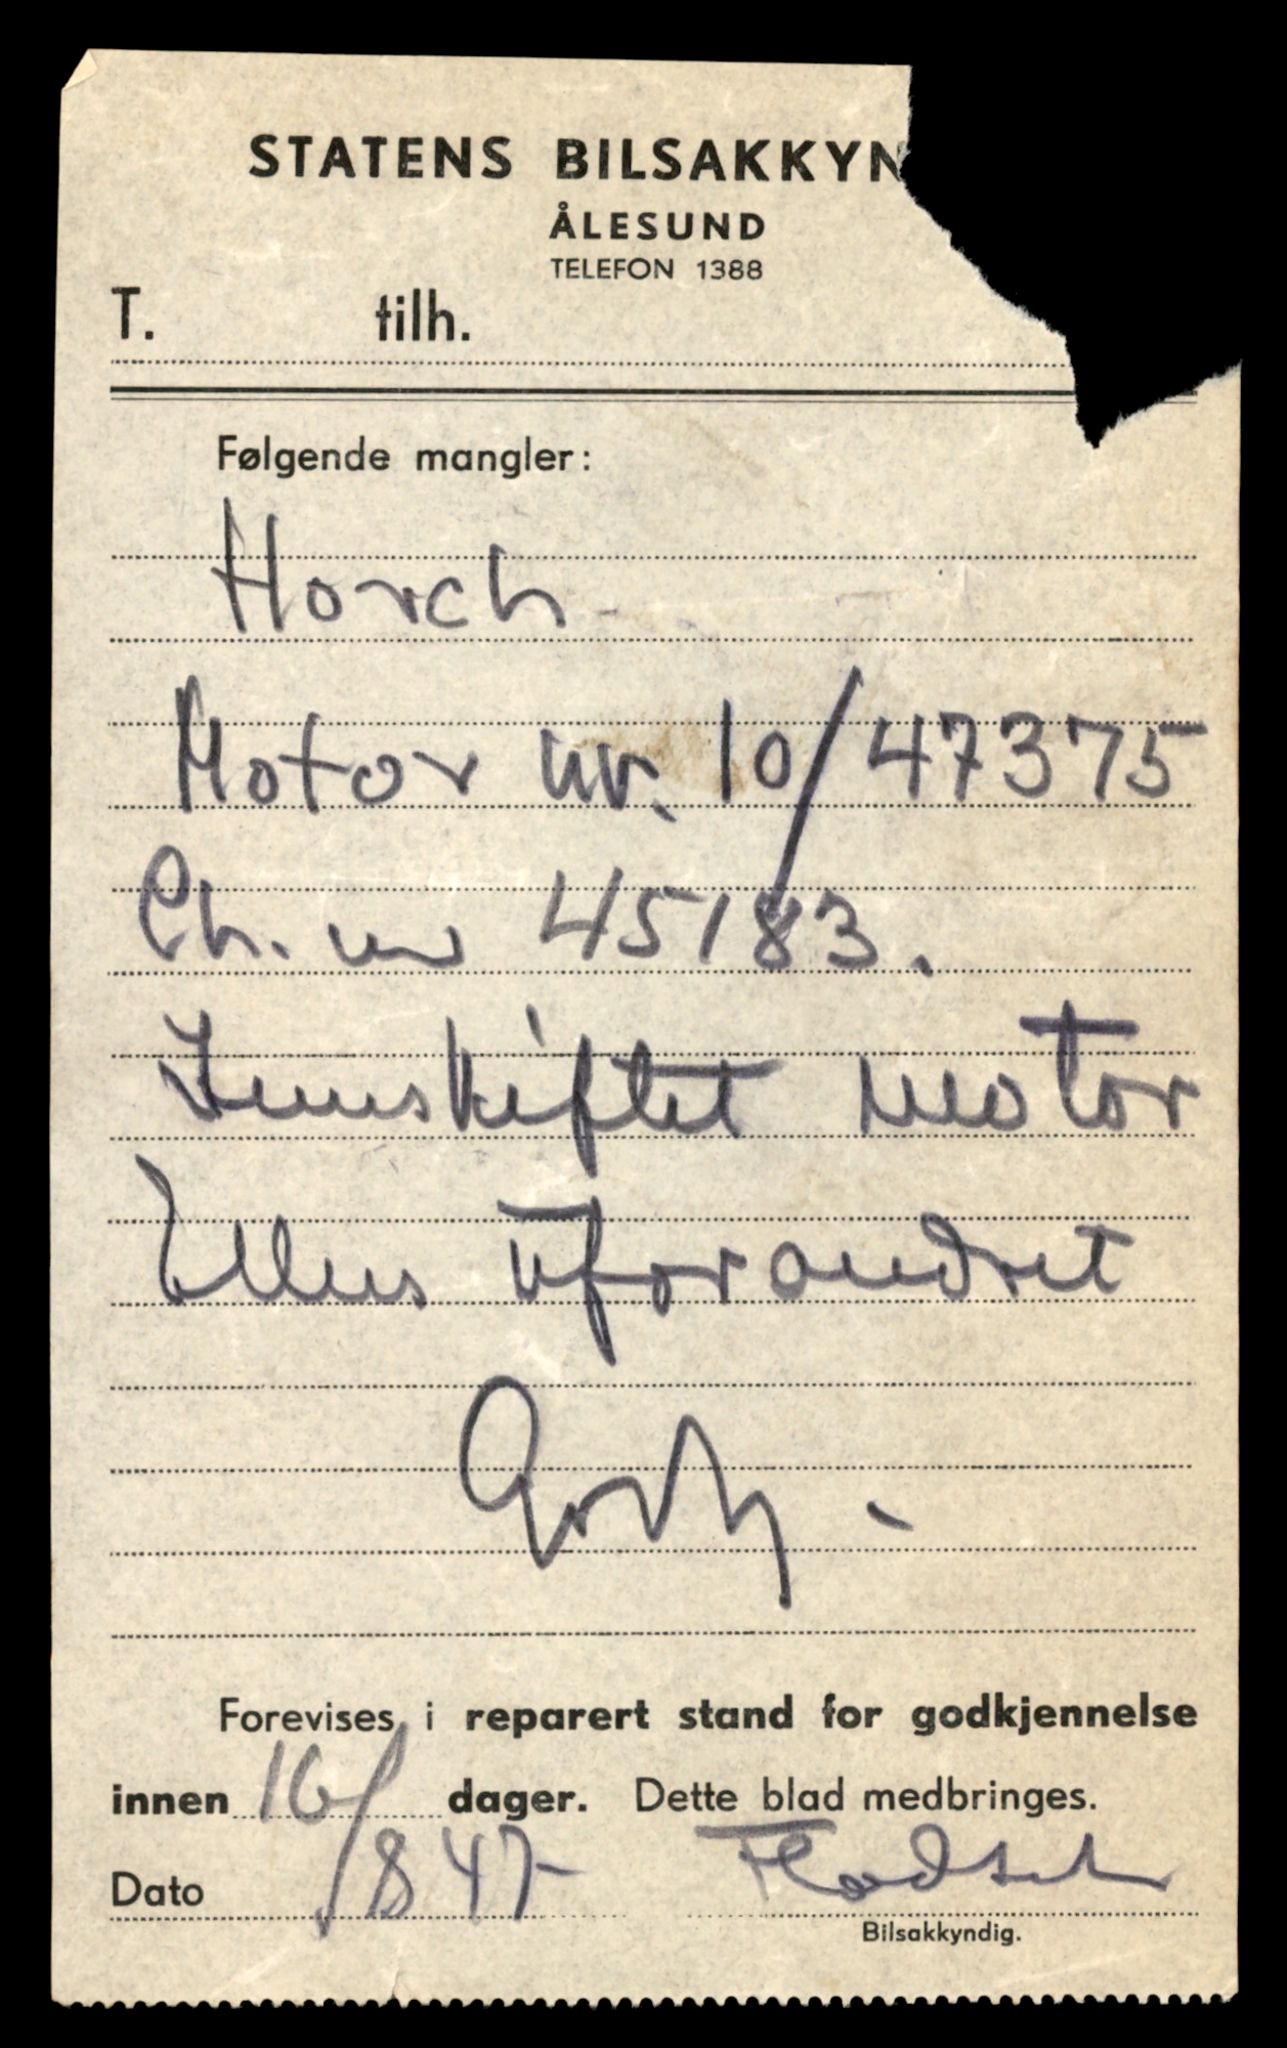 STATENS BILSAKKYN
ÅLESUND
TELEFON 1388
T. tilh.
Følgende mangler:
Horch -
Motor nr. 10/47375
Ch. nr 45183.
Innskiftet motor
Ellers uforandret
Godkj -
Forevises i reparert stand for godkjennelse
innen 16/ dager. Dette blad medbringes.
Dato 8 47-
Bilsakkyndig.